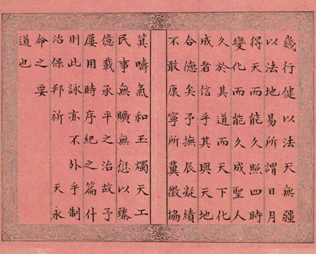 幾行健以法天無疆
以法地易所謂日月
得天而能久照四時
變化而能久成聖人
久於其道而天下化
成者信乎其與天地
合德矣予撫辰凝績
不敢康寧所冀徵協
箕疇氣和玉燭天工
民事無曠無愆以臻
億載承平之治故予
屢用時序紀之篇什
則此詠亦不外乎制
治保邦祈　天永
命之要
道也